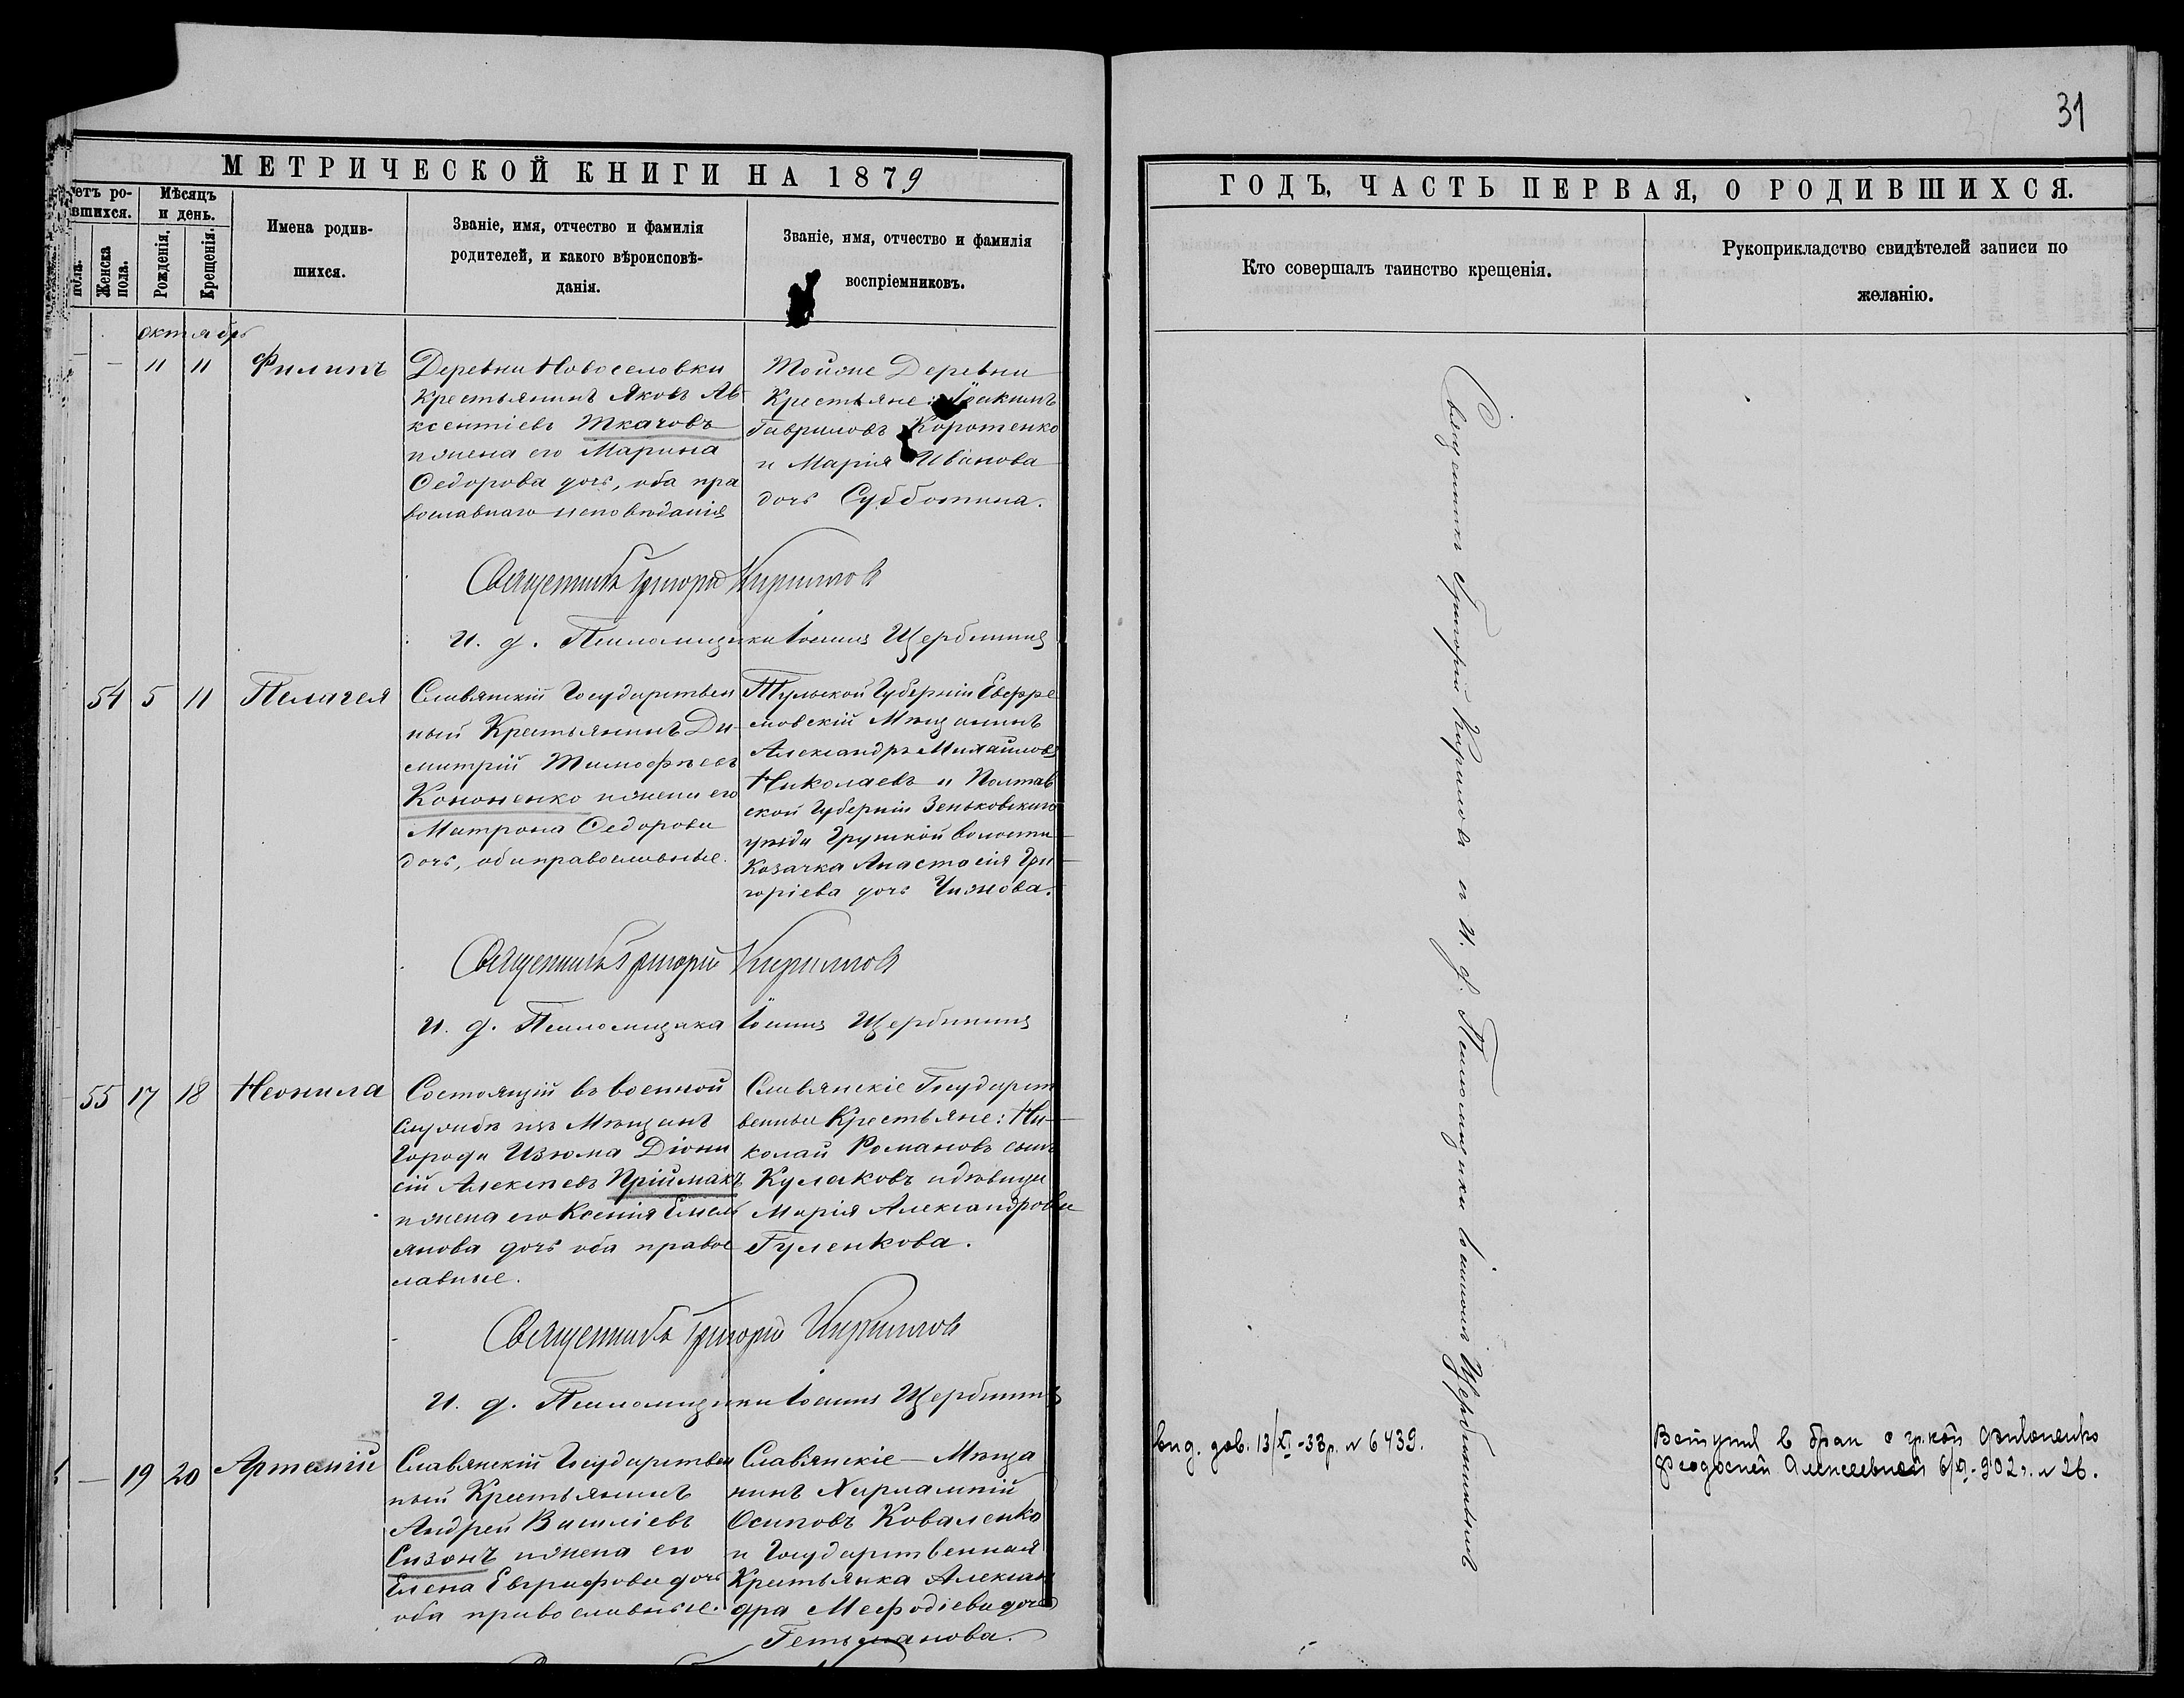 31
МЕТРИЧЕСКОЙ КНИГИ НА 1879
ГОДЪ, ЧАСТЬ ПЕРВАЯ, О РОДИВШИХСЯ.
етъ ро-
вшихся.
пола.
Женска пола.
Мѣсяцъ и день.
Рожденія.
Крещенія.
Имена родив-
шихся.
Званіе, имя, отчество и фамилія
родителей, и какого вѣроисповѣ-
данія.
Званіе, имя, отчество и фамилія
воспріемниковъ.
Кто совершалъ таинство крещенія.
Рукоприкладство свидѣтелей записи по
желанію.
октябрь
— 11 11 Филипъ
Деревни Новоселовки
крестьянинъ Яковъ Ав-
ксентіевъ Ткачовъ
и жена его Марина
Ѳедорова дочь, оба пра
вославнаго исповѣданія
Тойже Деревни
Крестьяне: Іоакимъ
Гавриловъ Коротенко
и Марія Иванова
дочь Субботина.
Священникъ Григорій Кириловъ
И. д. Псаломщика Іоаннъ Щербининъ
54 5 11 Пелагея
Славянскій Государствен
ный Крестьянинъ Ди-
митрій Тимофѣевъ
Кононенко и жена его
Матрона Ѳедорова
дочь, оба православные.
Тульской Губерніи Ефре
мовскій Мѣщанинъ
Александръ Михайловъ
Николаевъ и Полтав
ской Губерніи Зеньковскаго
уѣзда Грунской волости
Козачка Анастасія Гри-
горіева дочь Чижова.
Священникъ Григорій Кириловъ
И. д. Псаломщика Іоаннъ Щербининъ
55 17 18 Неонила
Состоящій въ военной
службѣ изъ Мѣщанъ
Города Изюма Діони
сій Алексѣевъ Пріймакъ
и жена его Ксенія Емель
янова дочь оба правос
лавные.
Славянскіе Государст
венные Крестьяне: Ни-
колай Романовъ сынъ
Кулаковъ и дѣвица
Марія Александрова
Гуленкова.
Священникъ Григорій Кириловъ
И. д. Псаломщика Іоаннъ Щербининъ
— 19 20 Артемій
Славянскій Государствен
ный Крестьянинъ
Андрей Василіевъ
Сизонъ и жена его
Елена Евграфова дочь
оба православные.
Славянскіе Мѣща
нинъ Харлампій
Осиповъ Коваленко
и Государственная
Крестьянка Алексан
дра Меѳодіева дочь
Гетьманова.
Священникъ Григорій Кириловъ и И. д. Псаломщика Іоаннъ Щербининъ
вид. дов. 13/XI-33р. № 6439.
Вступил в брак с гр-кой
Феодосией Алексеевной 6/XI-902г. № 26.